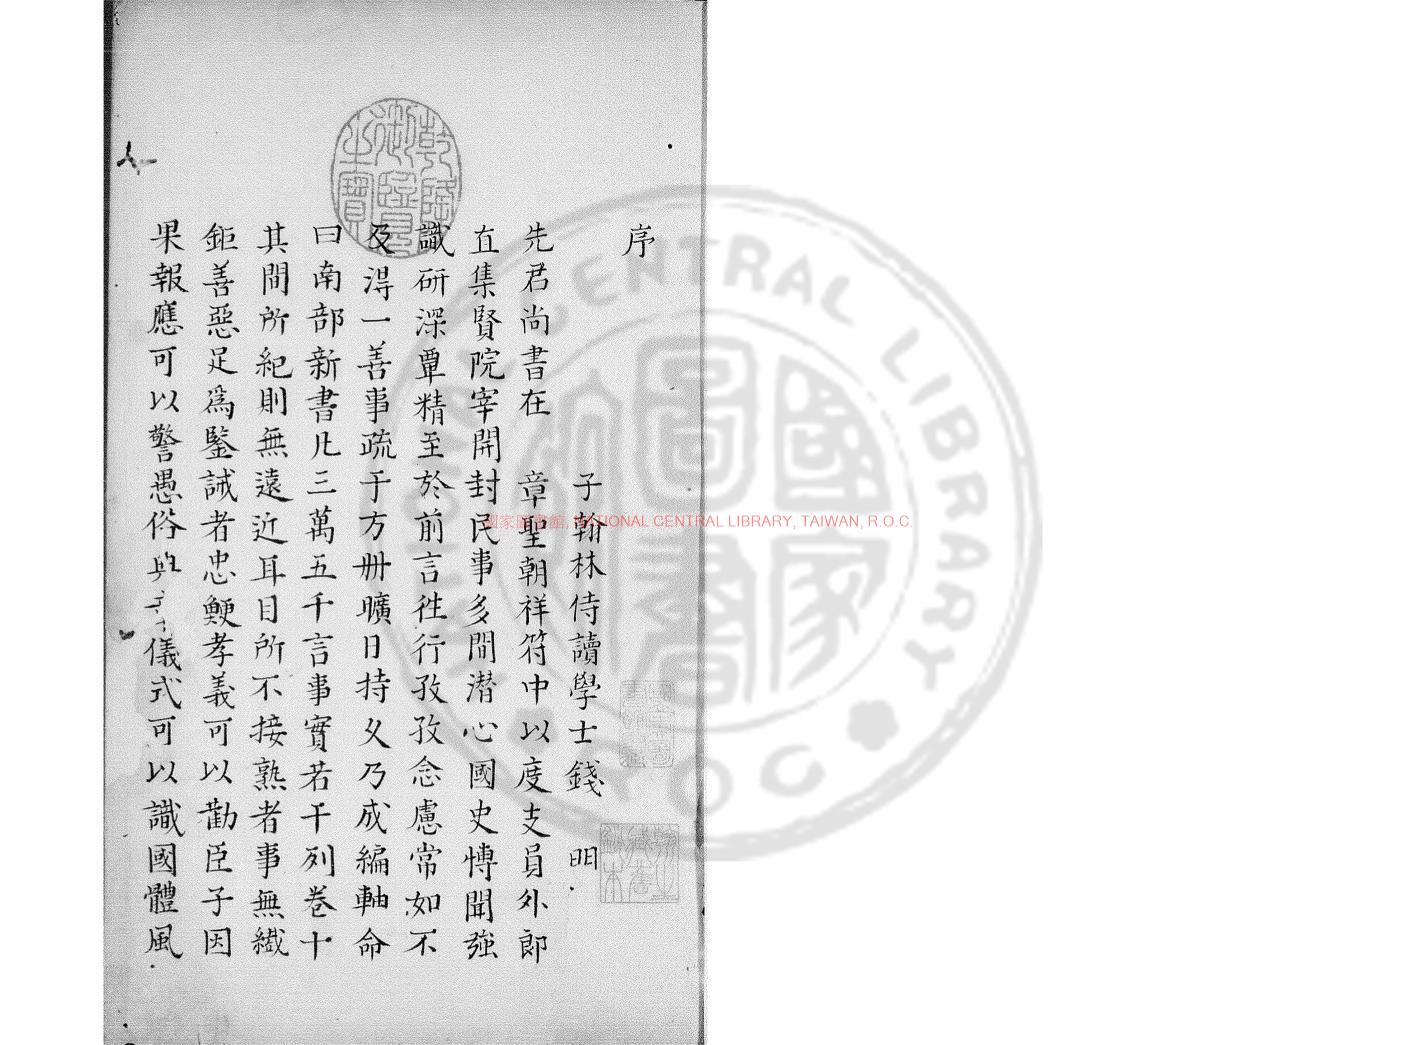 序
子翰林侍讀學士錢　明
先君尚書在　章聖朝祥符中以度支員外郎
直集賢院宰開封民事多閒潛心國史愽聞強
識研深覃精至於前言徃行孜孜念慮常如不
及淂一善事疏于方冊曠日持久乃成編軸命
曰南部新書凡三萬五千言事實若干列卷十
其間所紀則無遠近耳目所不接熟者事無纎
鉅善惡足為鍳誡者忠鯁孝義可以勸臣子因
果報應可以警愚俗典儀式可以識國體風
乾隆御覽之寶
國家圖書館, NATIONAL CENTRAL LIBRARY, TAIWAN, R.O.C.
NATIONAL CENTRAL LIBRARY
ROC
國家圖書